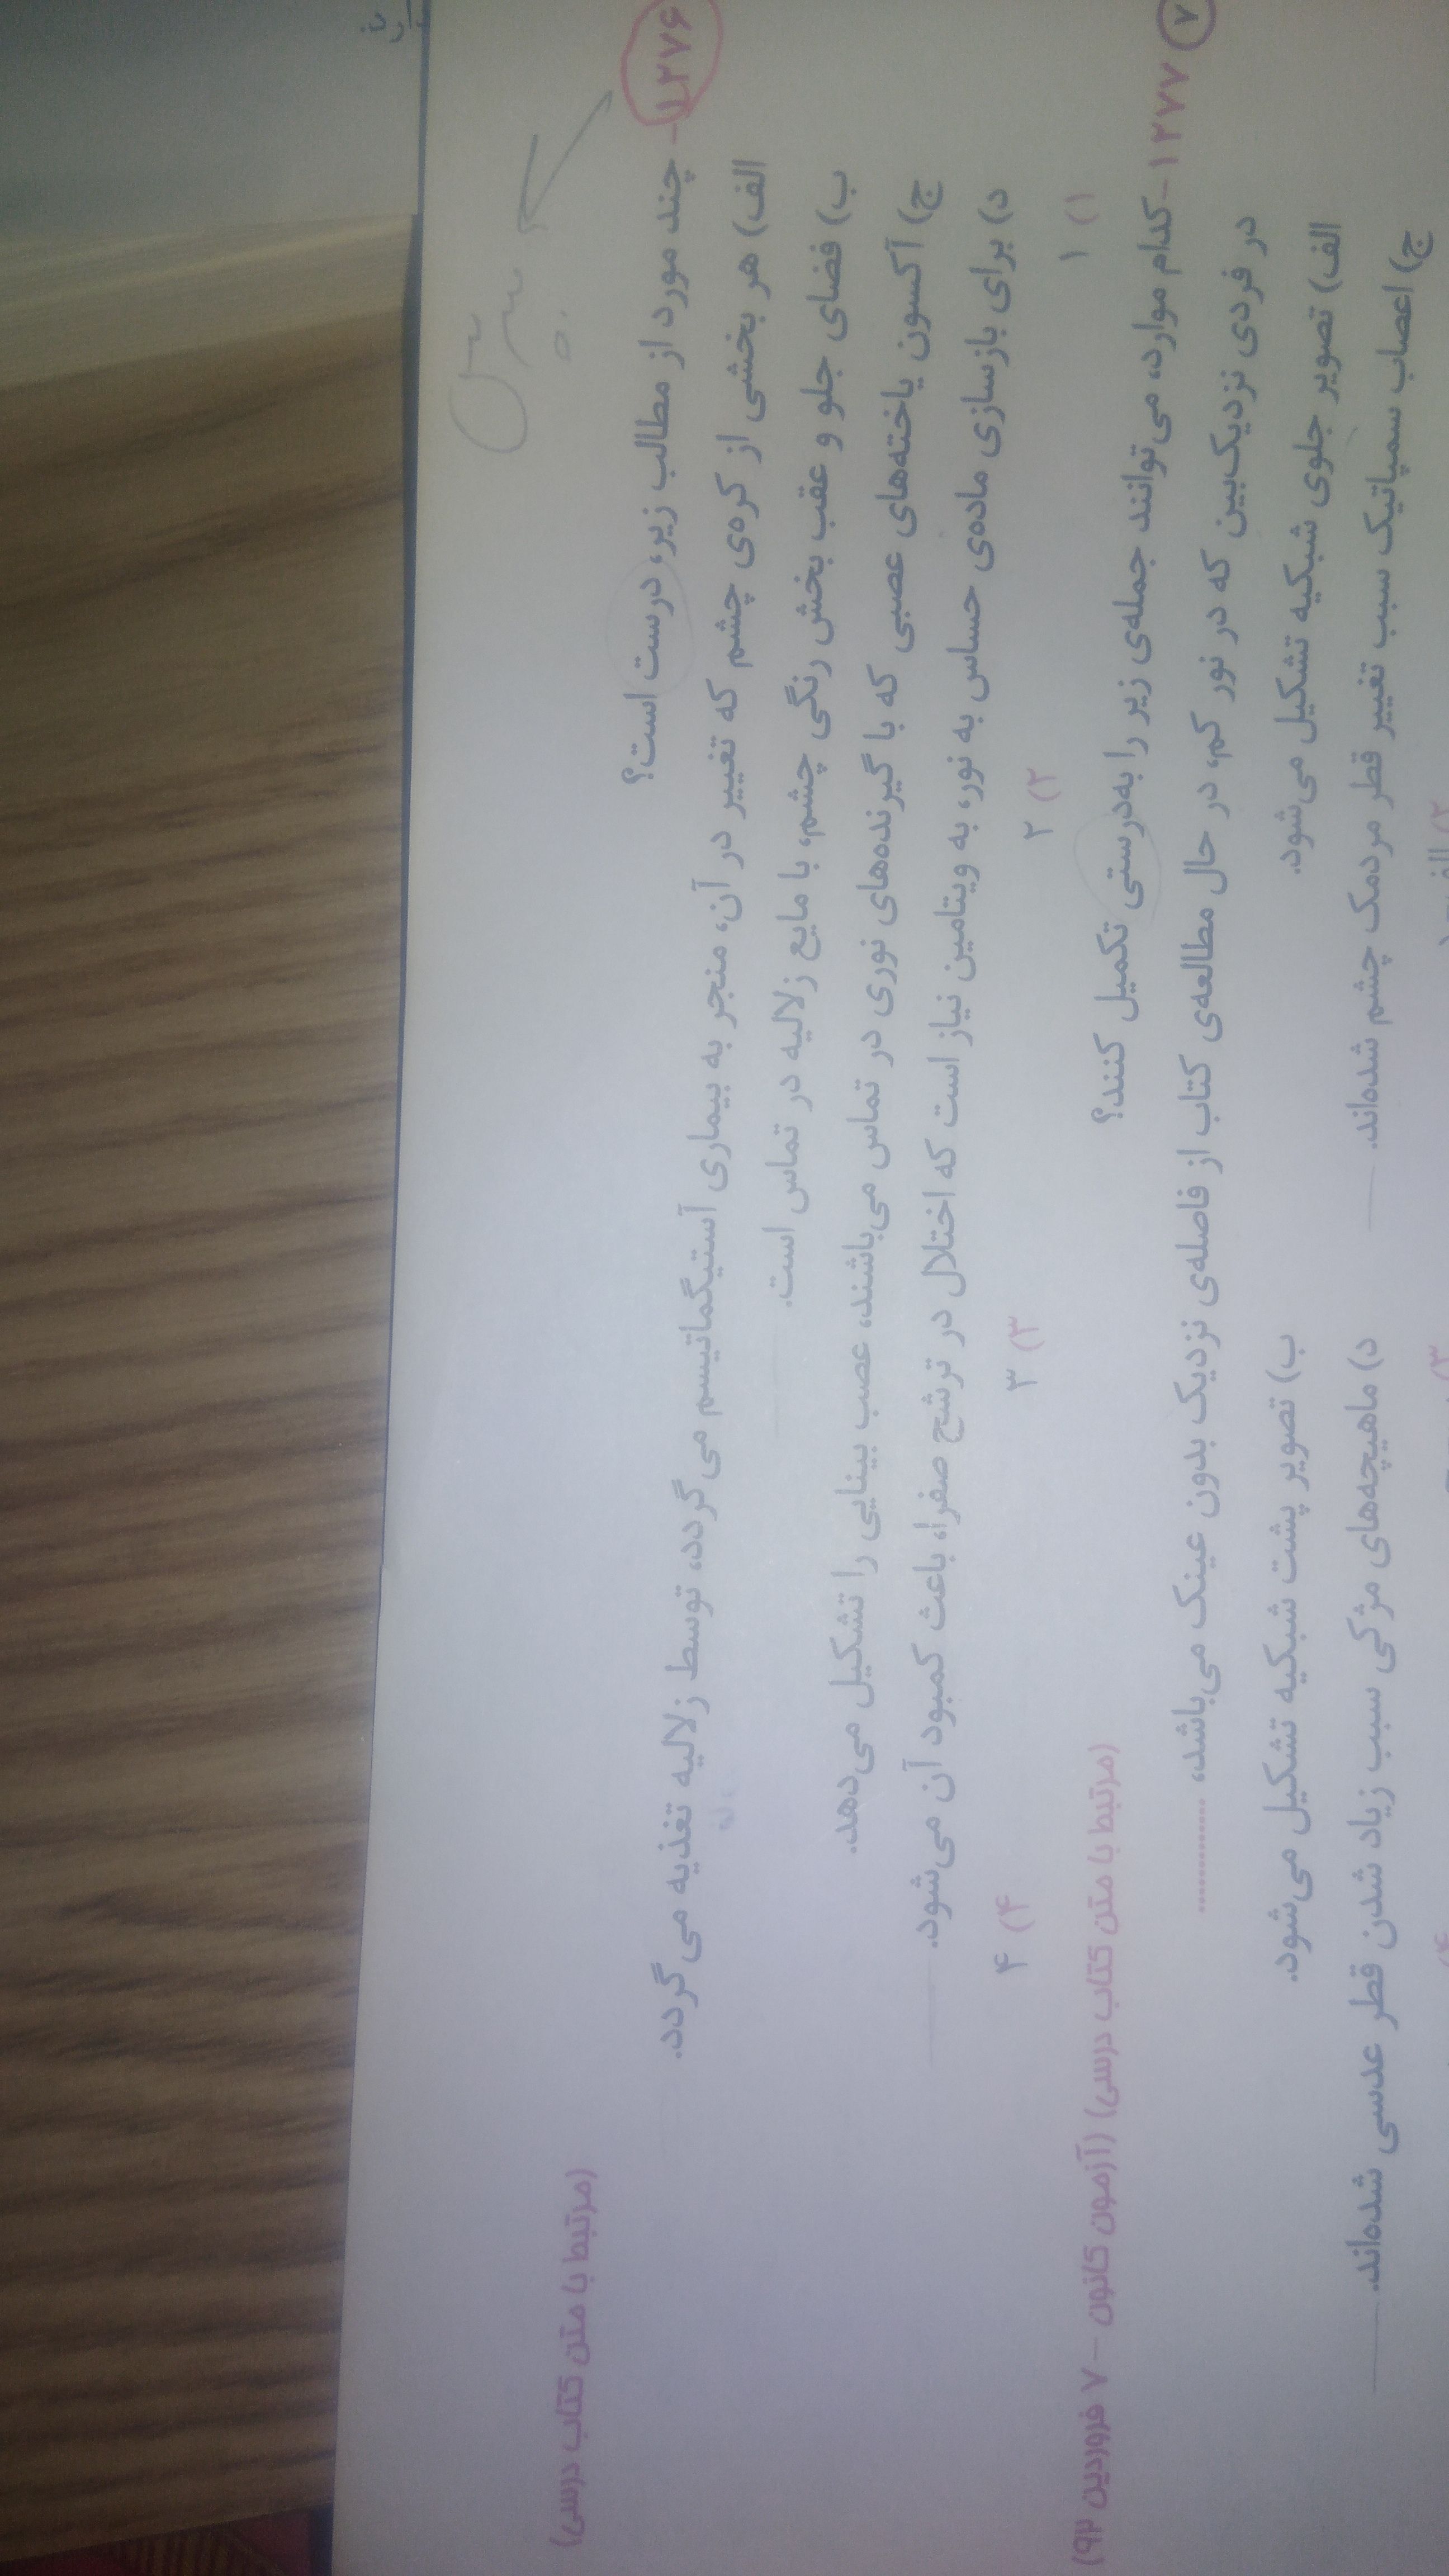 ۱۲۷۶- چند مورد از مطالب زیر، درست است؟ (مرتبط با متن کتاب درسی)
الف) هر بخشی از کره‌ی چشم که تغییر در آن، منجر به بیماری آستیگماتیسم می‌گردد، توسط زلالیه تغذیه می‌گردد.
ب) فضای جلو و عقب بخش رنگی چشم، با مایع زلالیه در تماس است.
ج) آکسون یاخته‌های عصبی که با گیرنده‌های نوری در تماس می‌باشند، عصب بینایی را تشکیل می‌دهد.
د) برای بازسازی ماده‌ی حساس به نور، به ویتامین نیاز است که اختلال در ترشح صفرا، باعث کمبود آن می‌شود.
۱) ۱ ۲) ۲ ۳) ۳ ۴) ۴
۷ ۱۲۷۷- کدام موارد، می‌توانند جمله‌ی زیر را به‌درستی تکمیل کنند؟ (مرتبط با متن کتاب درسی) (آزمون کانون - ۷ فروردین ۹۴)
در فردی نزدیک‌بین که در نور کم، در حال مطالعه‌ی کتاب از فاصله‌ی نزدیک بدون عینک می‌باشد، ............
الف) تصویر جلوی شبکیه تشکیل می‌شود. ب) تصویر پشت شبکیه تشکیل می‌شود.
ج) اعصاب سمپاتیک سبب تغییر قطر مردمک چشم شده‌اند. د) ماهیچه‌های مژکی سبب زیاد شدن قطر عدسی شده‌اند.